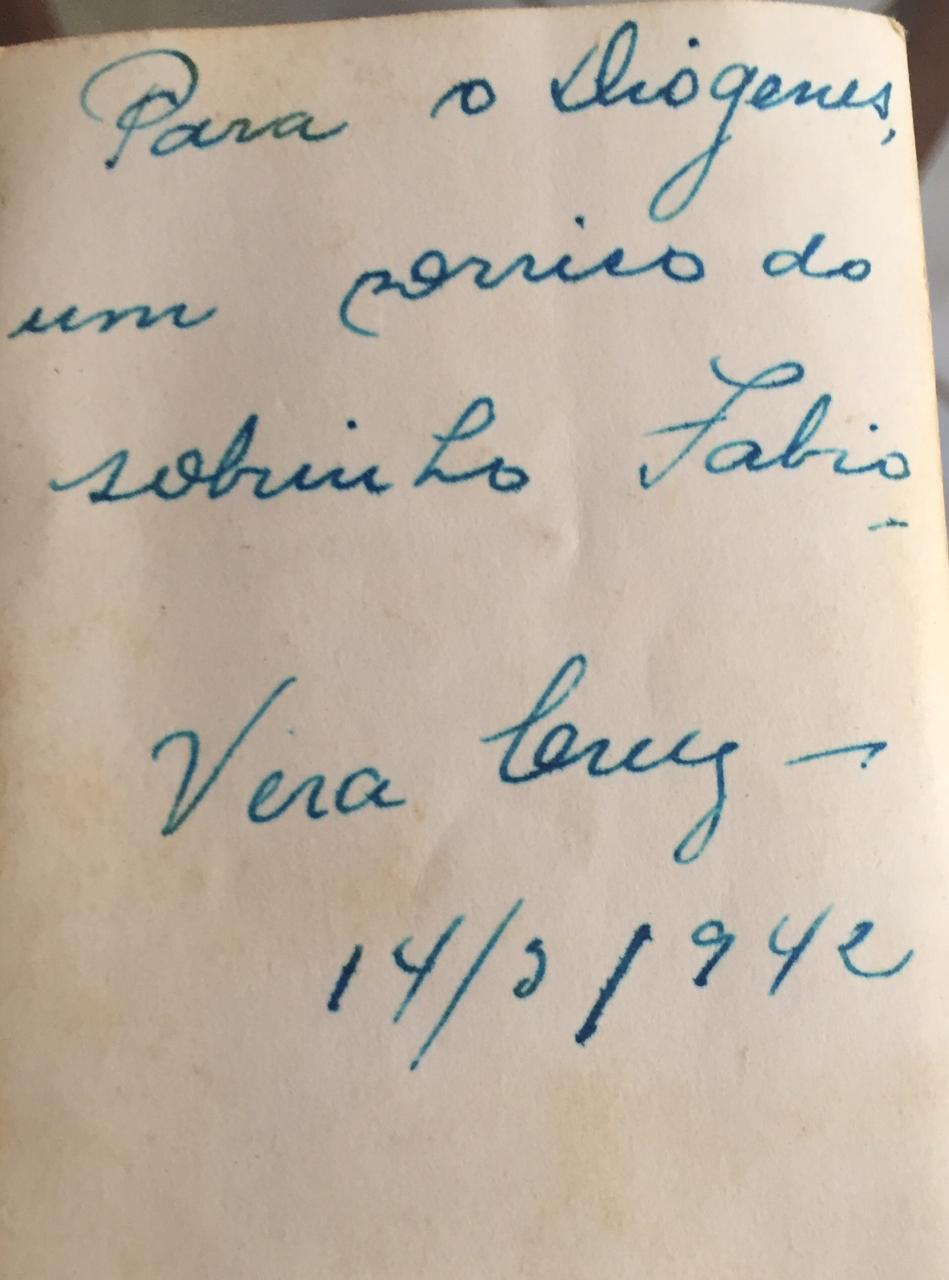 Para o Diógenes,
um sorriso do
sobrinho Fabio
Vera Cruz -
14/3/942